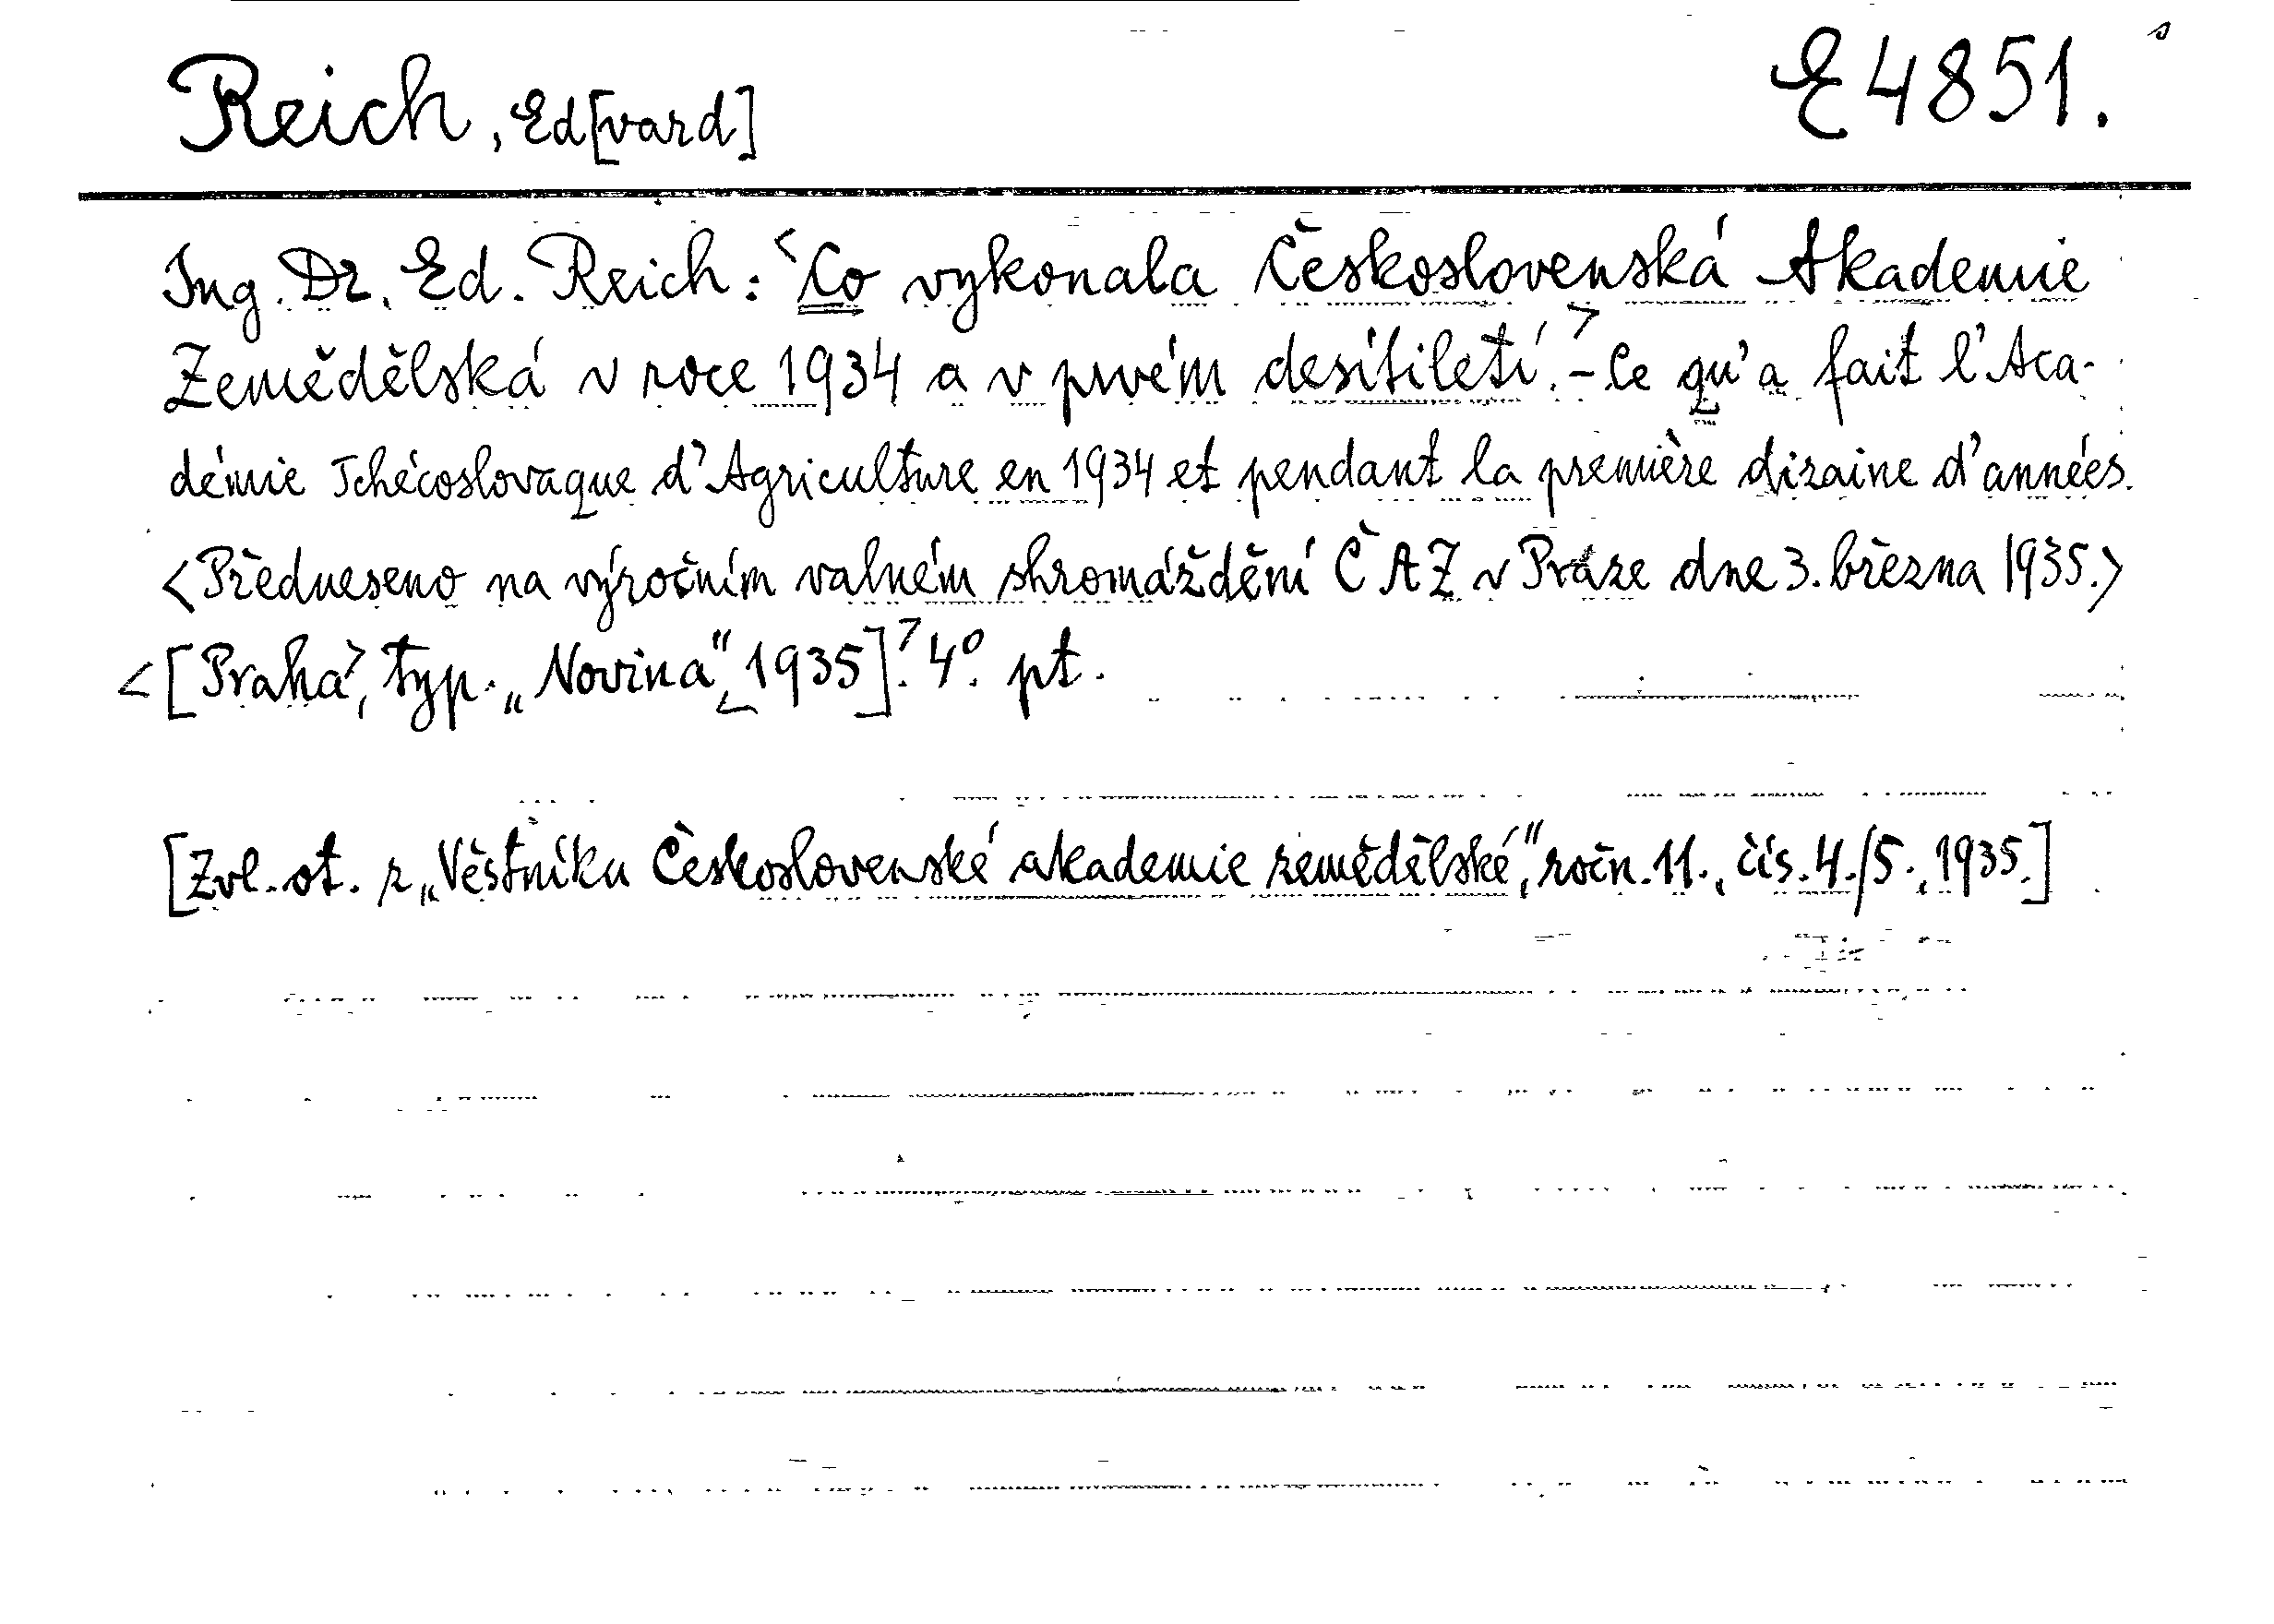 Reich, Ed[vard] E 4851.
Ing. Dr. Ed. Reich: <Co vykonala Československá Akademie
Zemědělská v roce 1934 a v prvém desítiletí.> - Ce qu'a fait l'Aca-
démie Tchécoslovaque d'Agriculture en 1934 et pendant la première dizaine d'années.
<Předneseno na výročním valném shromáždění ČAZ v Praze dne 3. března 1935.>
<[Praha>, typ. „Novina", <1935].> 4°. pt.
[Zvl. ot. z „Věstníku Československé akademie zemědělské", ročn. 11., čís. 4./5., 1935.]